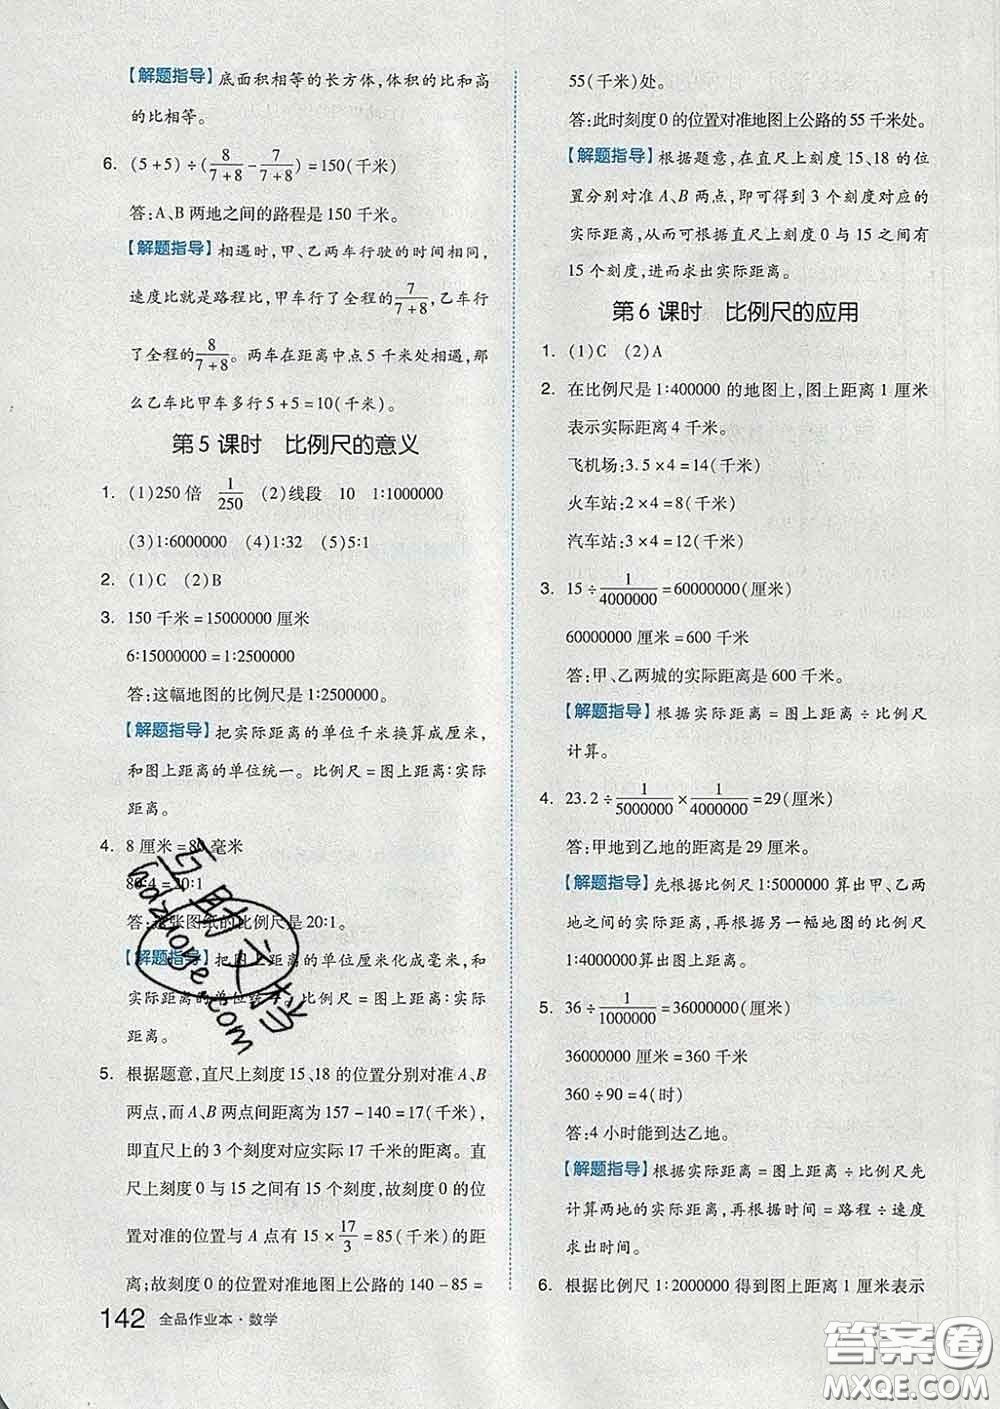 【解题指导】底面积相等的长方体,体积的比和高
的比相等。
6. (5+5)÷(8/(7+8)-7/(7+8))=150(千米)
答:A、B两地之间的路程是150千米。
【解题指导】相遇时,甲、乙两车行驶的时间相同,
速度比就是路程比,甲车行了全程的7/(7+8),乙车行
了全程的8/(7+8)。两车在距离中点5千米处相遇,那
么乙车比甲车多行5+5=10(千米)。
第5课时 比例尺的意义
1. (1)250倍 1/250 (2)线段 10 1:1000000
(3)1:6000000 (4)1:32 (5)5:1
2. (1)C (2)B
3. 150千米=15000000厘米
6:15000000=1:2500000
答:这幅地图的比例尺是1:2500000。
【解题指导】把实际距离的单位千米换算成厘米,
和图上距离的单位统一。比例尺=图上距离:实际
距离。
4. 8厘米=80毫米
80:4=20:1
答:这张图纸的比例尺是20:1。
【解题指导】把图上距离的单位厘米化成毫米,和
实际距离的单位统一。比例尺=图上距离:实际
距离。
5. 根据题意,直尺上刻度15、18的位置分别对准A、B
两点,而A、B两点间距离为157-140=17(千米),
即直尺上的3个刻度对应实际17千米的距离。直
尺上刻度0与15之间有15个刻度,故刻度0的位
置对准的位置与A点有15×17/3=85(千米)的距
离;故刻度0的位置对准地图上公路的140-85=
142 全品作业本·数学
55(千米)处。
答:此时刻度0的位置对准地图上公路的55千米处。
【解题指导】根据题意,在直尺上刻度15、18的位
置分别对准A、B两点,即可得到3个刻度对应的
实际距离,从而可根据直尺上刻度0与15之间有
15个刻度,进而求出实际距离。
第6课时 比例尺的应用
1. (1)C (2)A
2. 在比例尺是1:400000的地图上,图上距离1厘米
表示实际距离4千米。
飞机场:3.5×4=14(千米)
火车站:2×4=8(千米)
汽车站:3×4=12(千米)
3. 15÷1/4000000=60000000(厘米)
60000000厘米=600千米
答:甲、乙两城的实际距离是600千米。
【解题指导】根据实际距离=图上距离÷比例尺
计算。
4. 23.2÷1/5000000×1/4000000=29(厘米)
答:甲地到乙地的距离是29厘米。
【解题指导】先根据比例尺1:5000000算出甲、乙两
地之间的实际距离,再根据另一幅地图的比例尺
1:4000000算出图上距离。
5. 36÷1/1000000=36000000(厘米)
36000000厘米=360千米
360÷90=4(时)
答:4小时能到达乙地。
【解题指导】根据实际距离=图上距离÷比例尺先
计算两地的实际距离,再根据时间=路程÷速度
求出时间。
6. 根据比例尺1:2000000得到图上距离1厘米表示
答案圈
MXQE.COM